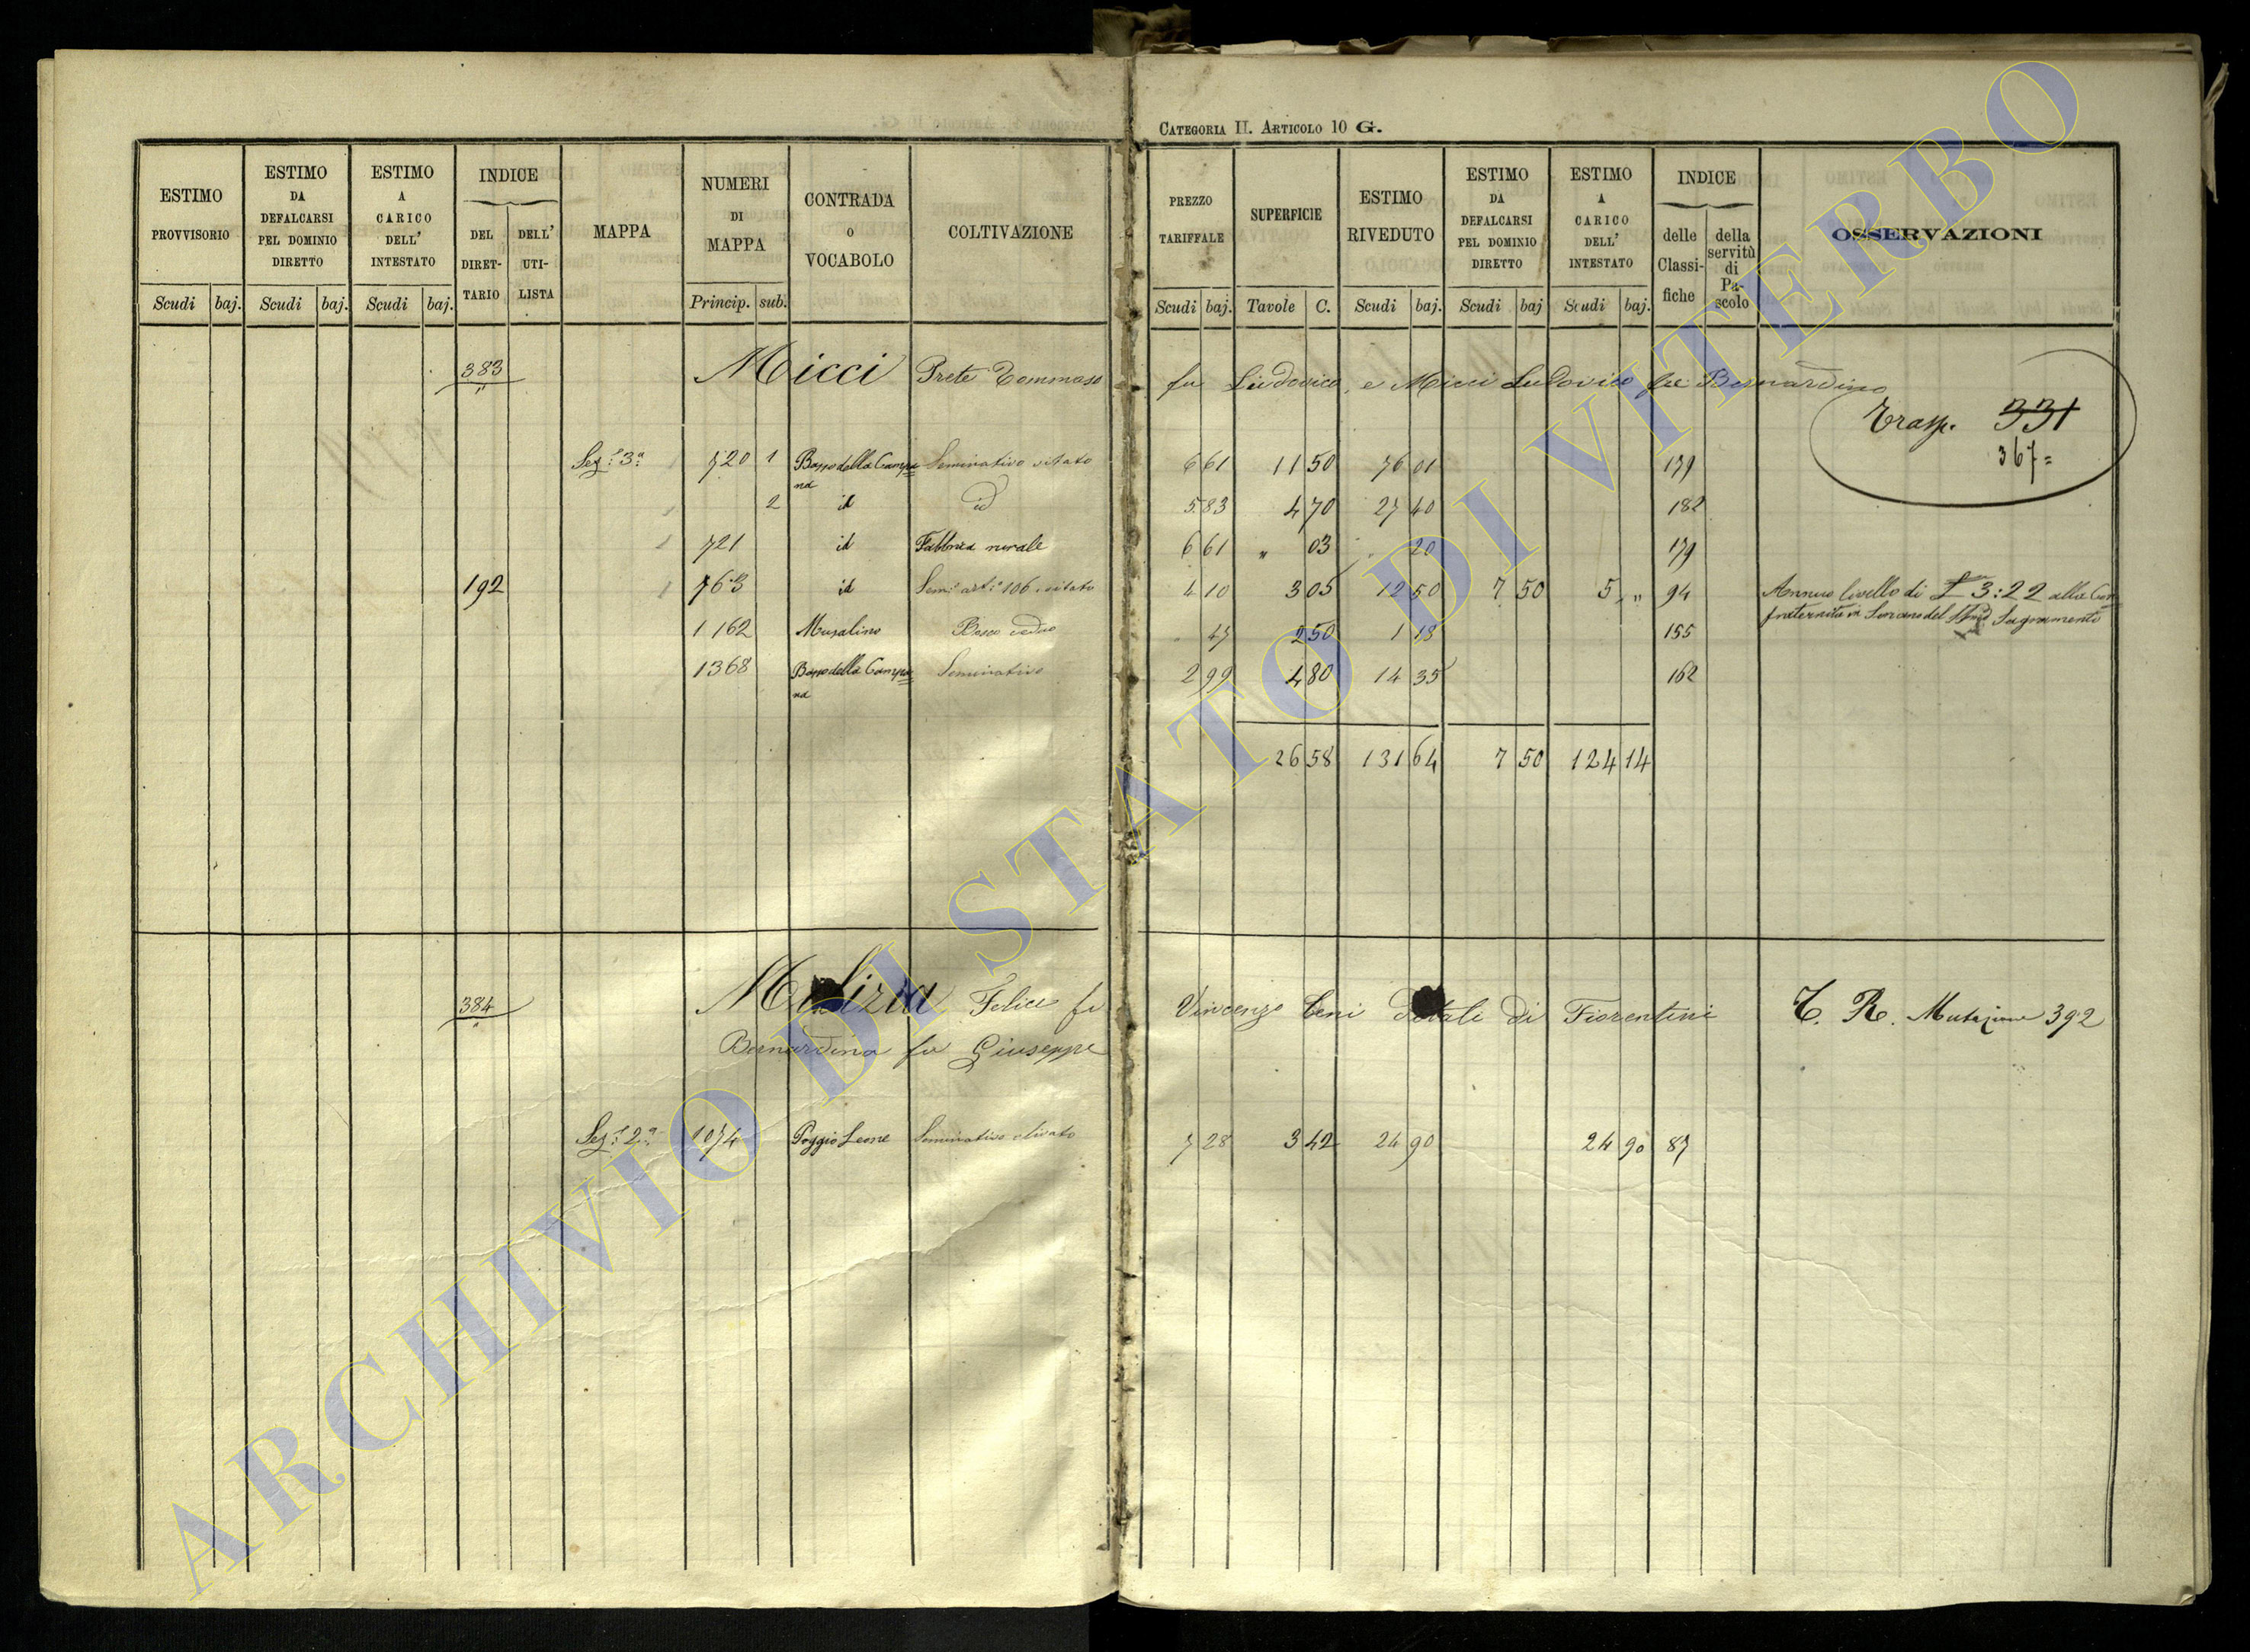 CATEGORIA II. ARTICOLO 10 G.
ESTIMO PROVVISORIO
Scudi baj.
ESTIMO DA DEFALCARSI PEL DOMINIO DIRETTO
Scudi baj.
ESTIMO A CARICO DELL' INTESTATO
Scudi baj.
INDICE
DEL DIRET-TARIO
DELL' UTI-LISTA
MAPPA
NUMERI DI MAPPA
Princip. sub.
CONTRADA O VOCABOLO
COLTIVAZIONE
PREZZO TARIFFALE
Scudi baj.
SUPERFICIE
Tavole C.
ESTIMO RIVEDUTO
Scudi baj.
ESTIMO DA DEFALCARSI PEL DOMINIO DIRETTO
Scudi baj
ESTIMO A CARICO DELL' INTESTATO
Scudi baj.
INDICE
delle Classi-fiche
della servitù di Pa-scolo
OSSERVAZIONI
383 Micci Prete Tommaso fu Ludovico, e Micci Ludovico fu Bernardino
"
Trasp. 331
367=
Sez.e 3a 720 1 Bosso della Campa= Seminativo vitato 6 61 11 50 76 01 179
na
2 id id 5 83 4 70 27 40 182
721 id Fabbrica rurale 6 61 " 03 20 179
192 763 id Sem: art: 106 vitato 4 10 3 05 12 50 7 50 5 " 94 Annuo livello di £ 3:22 alla Con
fraternita in Soriano del SSmo Sagramento
1162 Musalino Bosco ceduo 47 2 50 1 18 155
1368 Bosso della Campa= Seminativo 2 99 4 80 14 35 162
na
26 58 131 64 7 50 124 14
384 Malizia Felice fu Vincenzo beni dotali di Fiorentini T. R. Mutazione 392
" Bernardina fu Giuseppe
Sez.e 2a 1074 Poggio Leone Seminativo olivato 7 28 3 42 24 90 24 90 87
ARCHIVIO DI STATO DI VITERBO